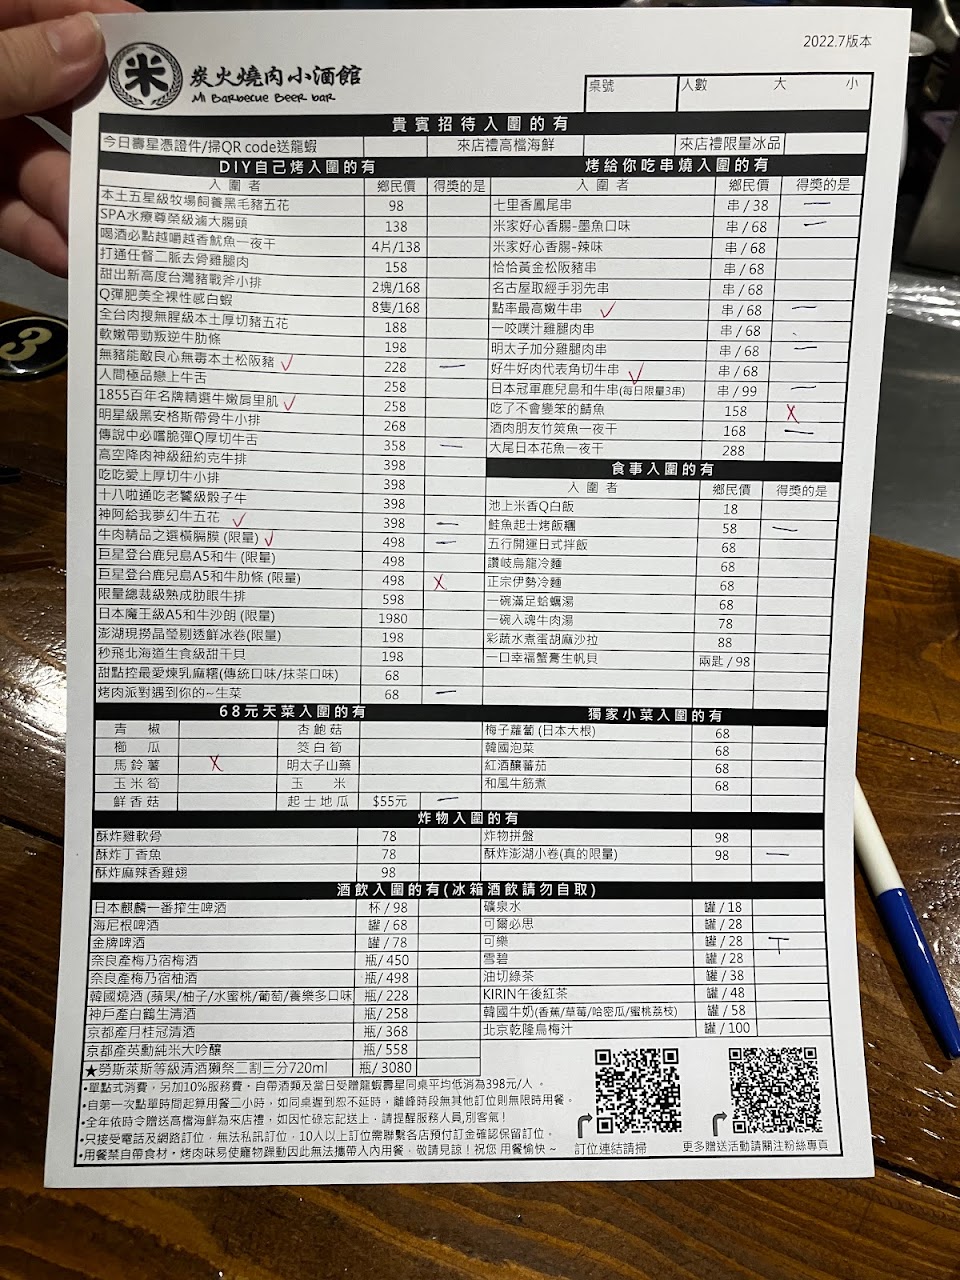 2022.7版本
米
炭火燒肉小酒館
Mi Barbecue Beer bar
桌號 人數 大 小
貴賓招待入圍的有
今日壽星憑證件/掃QR code送龍蝦 來店禮高檔海鮮 來店禮限量冰品
DIY自己烤入圍的有
入圍者 鄉民價 得獎的是
本土五星級牧場飼養黑毛豬五花 98
SPA水療尊榮級滷大腸頭 138
喝酒必點越嚼越香魷魚一夜干 4片/138
打通任督二脈去骨雞腿肉 158
甜出新高度台灣豬戰斧小排 2塊/168
Q彈肥美全裸性感白蝦 8隻/168
全台肉搜無腥級本土厚切豬五花 188
軟嫩帶勁叛逆牛肋條 198
無豬能敵良心無毒本土松阪豬 228 一
人間極品戀上牛舌 258
1855百年名牌精選牛嫩肩里肌 258
明星級黑安格斯帶骨牛小排 268
傳說中必嚐脆彈Q厚切牛舌 358 一
高空降肉神級紐約克牛排 398
吃吃愛上厚切牛小排 398
十八啦通吃老饕級骰子牛 398
神阿給我夢幻牛五花 398 二
牛肉精品之選橫膈膜 (限量) 498 二
巨星登台鹿兒島A5和牛 (限量) 498
巨星登台鹿兒島A5和牛肋條 (限量) 498 X
限量總裁級熟成肋眼牛排 598
日本魔王級A5和牛沙朗 (限量) 1980
澎湖現撈晶瑩剔透鮮冰卷(限量) 198
秒飛北海道生食級甜干貝 198
甜點控最愛煉乳麻糬(傳統口味/抹茶口味) 68
烤肉派對遇到你的~生菜 68 一
烤給你吃串燒入圍的有
入圍者 鄉民價 得獎的是
七里香鳳尾串 串/38 一
米家好心香腸-墨魚口味 串/68 一
米家好心香腸-辣味 串/68
恰恰黃金松阪豬串 串/68
名古屋取經手羽先串 串/68
點率最高嫩牛串 串/68 一
一咬噗汁雞腿肉串 串/68
明太子加分雞腿肉串 串/68 一
好牛好肉代表角切牛串 串/68
日本冠軍鹿兒島和牛串(每日限量3串) 串/99 一
吃了不會變笨的鯖魚 158 X
酒肉朋友竹筴魚一夜干 168 一
大尾日本花魚一夜干 288
食事入圍的有
入圍者 鄉民價 得獎的是
池上米香Q白飯 18
鮭魚起士烤飯糰 58 一
五行開運日式拌飯 68
讚岐烏龍冷麵 68
正宗伊勢冷麵 68
一碗滿足蛤蠣湯 68
一碗入魂牛肉湯 78
彩蔬水煮蛋胡麻沙拉 88
一口幸福蟹膏生帆貝 兩匙/98
68元天菜入圍的有
青椒 杏鮑菇
櫛瓜 筊白筍
馬鈴薯 X 明太子山藥
玉米筍 玉米
鮮香菇 起士地瓜 $55元 一
獨家小菜入圍的有
梅子蘿蔔 (日本大根) 68
韓國泡菜 68
紅酒釀蕃茄 68
和風牛筋煮 68
炸物入圍的有
酥炸雞軟骨 78 炸物拼盤 98
酥炸丁香魚 78 酥炸澎湖小卷(真的限量) 98 一
酥炸麻辣香雞翅 98
酒飲入圍的有(冰箱酒飲請勿自取)
日本麒麟一番搾生啤酒 杯/98 礦泉水 罐/18
海尼根啤酒 罐/68 可爾必思 罐/28
金牌啤酒 罐/78 可樂 罐/28 T
奈良產梅乃宿梅酒 瓶/450 雪碧 罐/28
奈良產梅乃宿柚酒 瓶/498 油切綠茶 罐/38
韓國燒酒 (蘋果/柚子/水蜜桃/葡萄/養樂多口味 瓶/228 KIRIN午後紅茶 罐/48
神戶產白鶴生清酒 瓶/258 韓國牛奶(香蕉/草莓/哈密瓜/蜜桃荔枝) 罐/58
京都產月桂冠清酒 瓶/368 北京乾隆烏梅汁 罐/100
京都產英勳純米大吟釀 瓶/558
★勞斯萊斯等級清酒獺祭二割三分720ml 瓶/3080
•單點式消費，另加10%服務費，自帶酒類及當日受贈龍蝦壽星同桌平均低消為398元/人。
•自第一次點單時間起算用餐二小時，如同桌遲到恕不延時，離峰時段無其他訂位則無限時用餐。
•全年依時令贈送高檔海鮮為來店禮，如因忙碌忘記送上，請提醒服務人員,別客氣！
•只接受電話及網路訂位，無法私訊訂位，10人以上訂位需聯繫各店預付訂金確認保留訂位。
•用餐禁自帶食材，烤肉味易使寵物躁動因此無法攜帶入內用餐，敬請見諒！祝您 用餐愉快~
訂位連結請掃
更多贈送活動請關注粉絲專頁
3